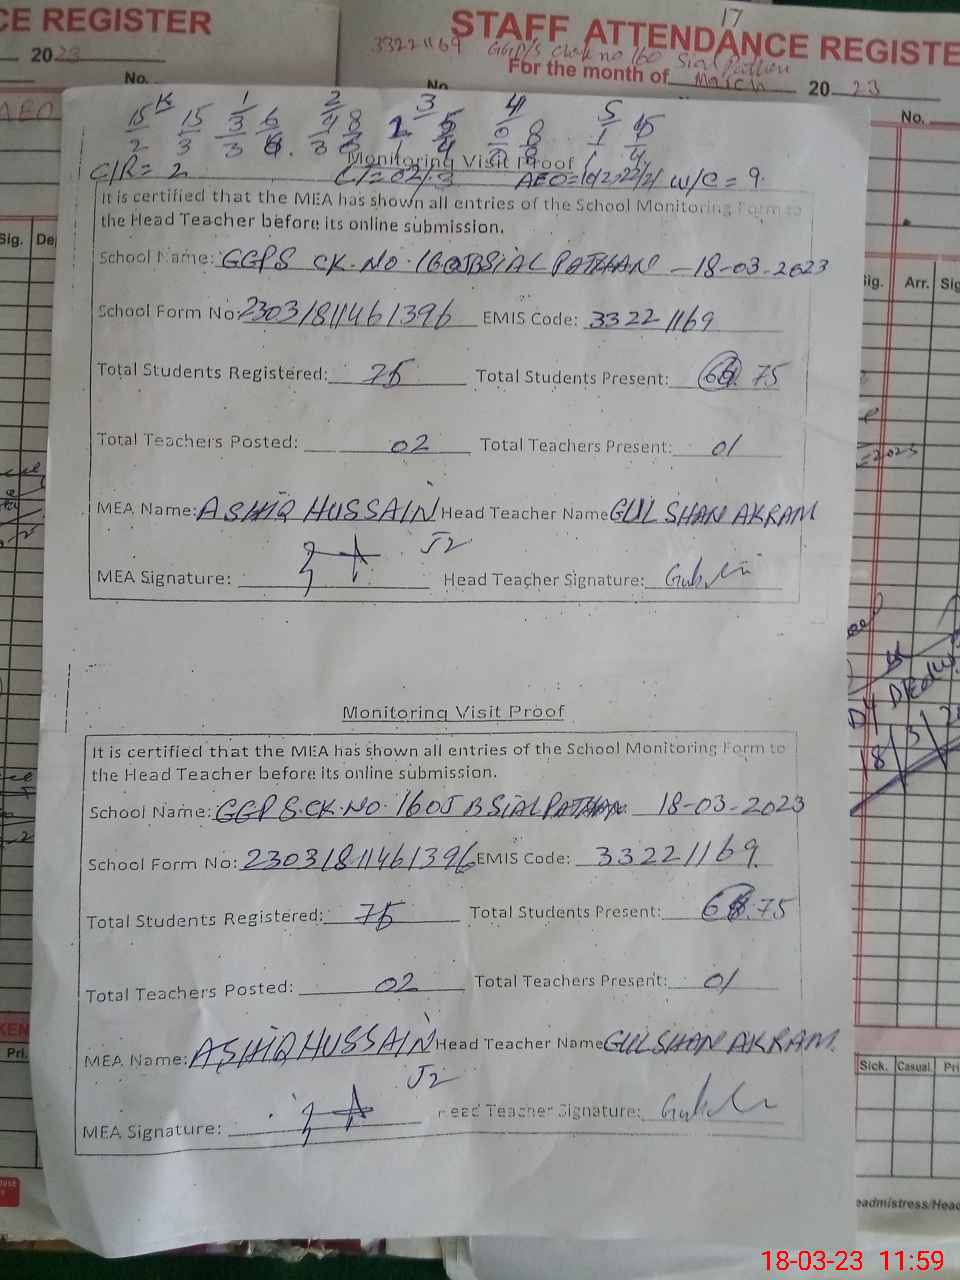 CE REGISTER
2023
No.
17
STAFF ATTENDANCE REGISTE
33221169
For the month of March 2023
No.
No.
K 1 2 3 4 5
C/R = 2
W/C = 9
Monitoring Visit Proof
It is certified that the MEA has shown all entries of the School Monitoring Form to
the Head Teacher before its online submission.
School Name: GGPS CK.NO.160JB SIAL PATHAN - 18-03-2023
School Form No: 23031811461396 EMIS Code: 33221169
Total Students Registered: 75 Total Students Present: 75
Total Teachers Posted: 02 Total Teachers Present: 01
MEA Name: ASHIQ HUSSAIN Head Teacher Name GULSHAN AKRAM
J2
MEA Signature: Head Teacher Signature:
Monitoring Visit Proof
It is certified that the MEA has shown all entries of the School Monitoring Form to
the Head Teacher before its online submission.
School Name: GGPS.CK.NO.160JB SIAL PATHAN 18-03-2023
School Form No: 23031811461396 EMIS Code: 33221169
Total Students Registered: 75 Total Students Present: 75
Total Teachers Posted: 02 Total Teachers Present: 01
MEA Name: ASHIQ HUSSAIN Head Teacher Name GULSHAN AKRAM
J2
MEA Signature: Head Teacher Signature:
Sig. De
Sig. Arr. Sig
Pri.
Sick. Casual. Pri
eadmistress/Head
18-03-23 11:59